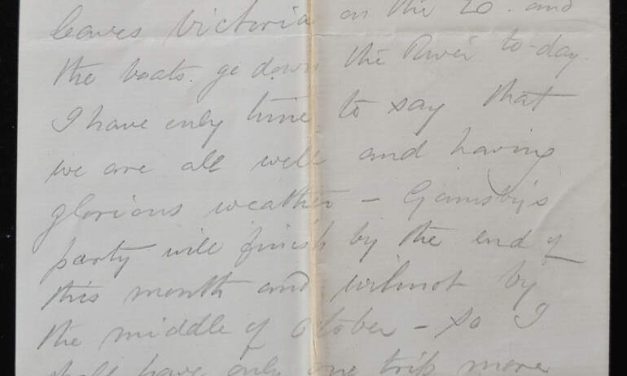 leaves Victoria on the 20. and
the boats. go down the River to-day.
I have only time to say that
we are all well and having
glorious weather – Gamsby's
party will finish by the end of
this month and Wilmot by
the middle of October – so I
shall have only one trip more